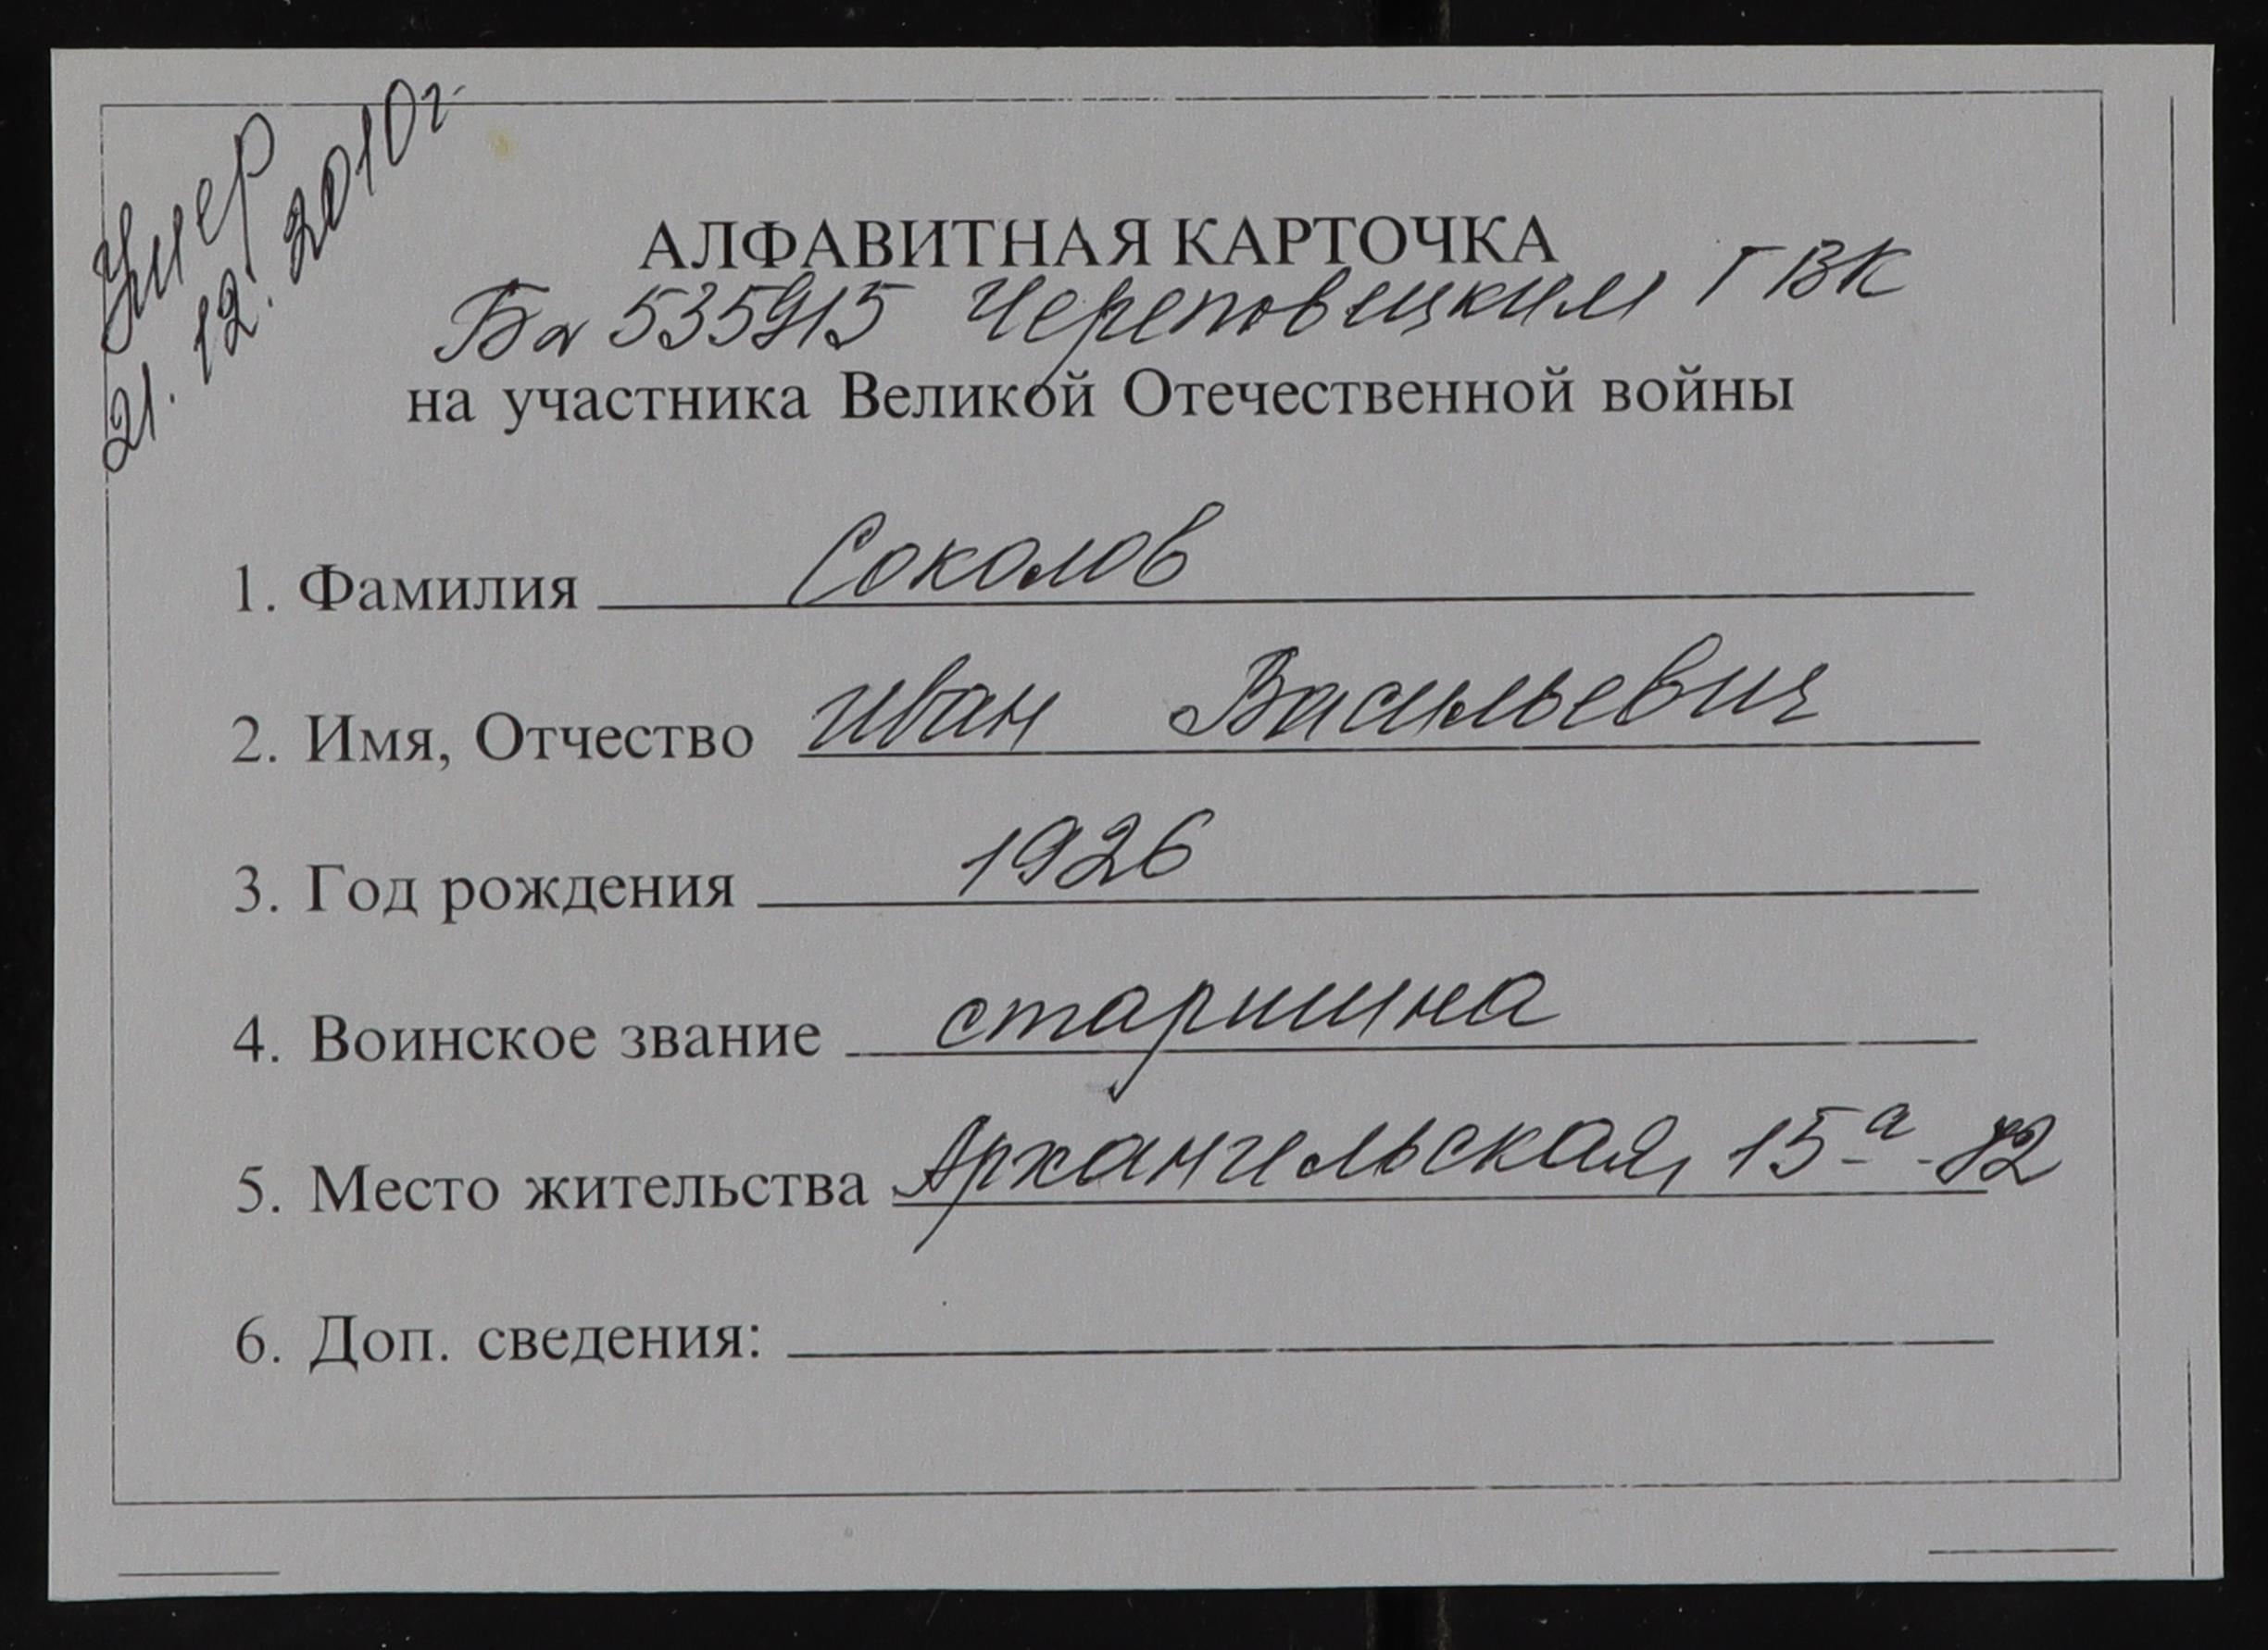 Умер
21.12.2010г
АЛФАВИТНАЯ КАРТОЧКА
Ба 535915 Череповецким ГВК
на участника Великой Отечественной войны
1. Фамилия Соколов
2. Имя, Отчество Иван Васильевич
3. Год рождения 1926
4. Воинское звание старшина
5. Место жительства Архангельская, 15а-82
6. Доп. сведения: